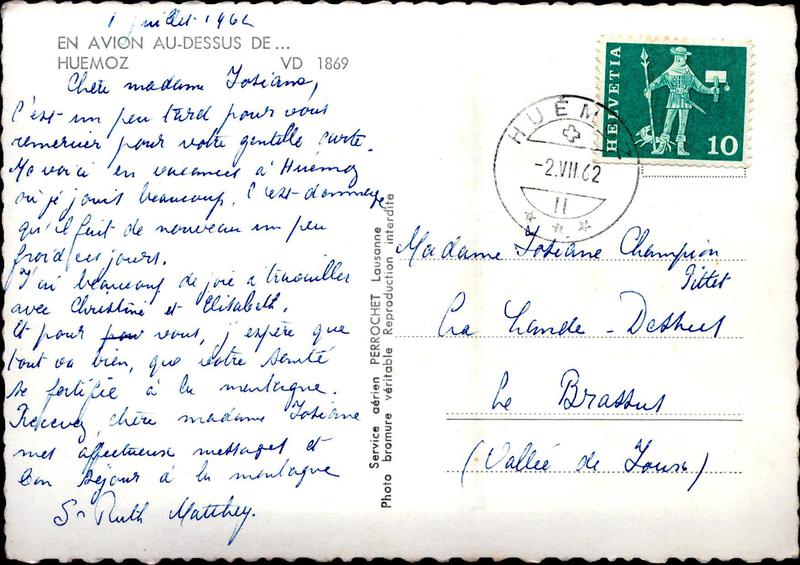 1 juillet 1962
EN AVION AU-DESSUS DE ...
HUEMOZ VD 1869
Chère madame Josiane,
C'est un peu tard pour vous
remercier pour votre gentille carte.
Me voici en vacances à Huemoz
où je jouis beaucoup. C'est dommage
qu'il fait de nouveau un peu
froid ces jours.
J'ai beaucoup de joie à travailler
avec Christine et Elisabeth.
Et pour pour vous, j'espère que
tout va bien, que votre santé
se fortifie à la montagne.
Recevez chère madame Josiane
mes affectueux messages et
bon séjour à la montagne
Sr Ruth Matthey.
Service aérien PERROCHET Lausanne
Photo bromure véritable Reproduction interdite
HELVETIA
10
HUÉMOZ
-2.VII.62
11
Madame Josiane Champion
Pittet
La Lande-Dessus
Le Brassus
(Vallée de Joux)